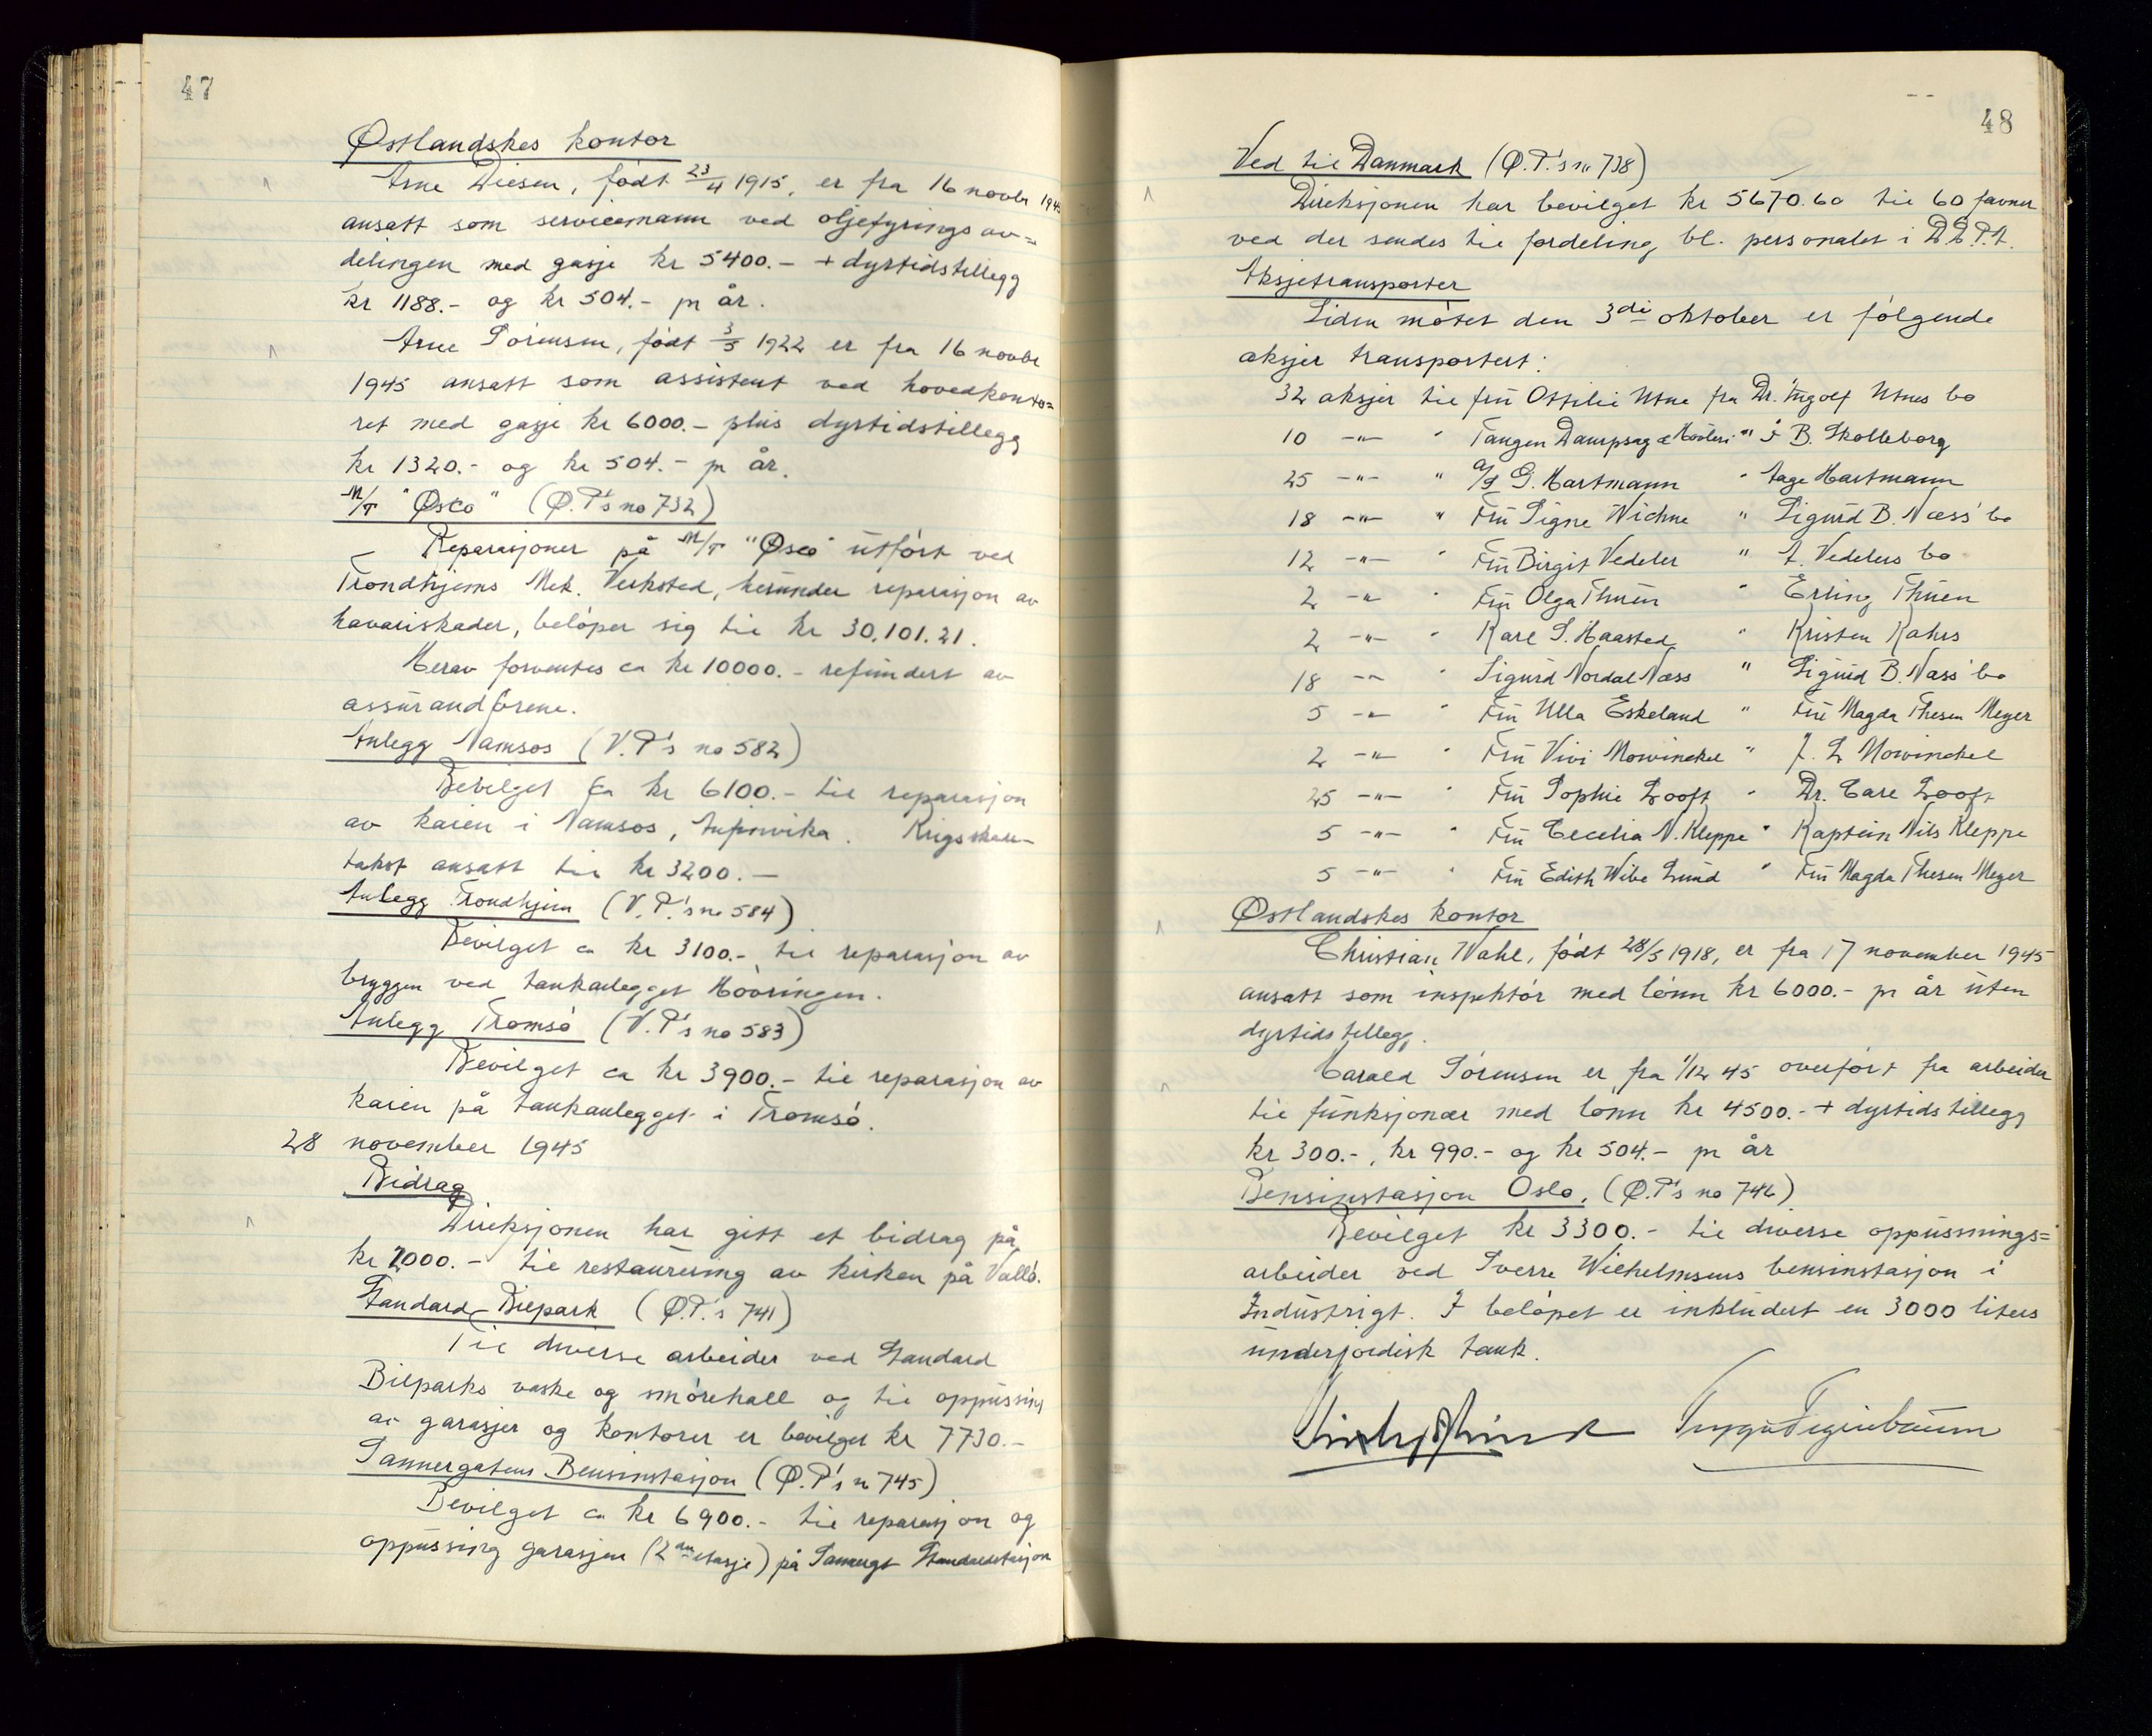 47
Østlandskes kontor
Arne Diesen, født 23/4 1915, er fra 16 novbr 1945
ansatt som servicemann ved oljefyringsav=
delingen med gasje kr 5400.- + dyrtidstillegg
kr 1188.- og kr 504.- pr år.
Arne Sörensen, født 3/5 1922 er fra 16 novbr
1945 ansatt som assistent ved hovedkonto=
ret med gasje kr 6000.- plus dyrtidstillegg
kr 1320.- og kr 504.- pr år.
M/T "Østo" (Ø.P's no 732)
Reparasjoner på M/T "Østo" utført ved
Trondhjems Mek. Verksted, herunder reparasjon av
havariskader, beløper sig til kr 30,101.21.
Herav forventes ca kr 10000.- refundert av
assurandørene.
Anlegg Namsos (V.P's no 582)
Bevilget ca kr 6100.- til reparasjon
av kaien i Namsos,
takst ansatt til kr 3200.-
Anlegg Trondhjem (V.P.'s no 584)
Bevilget ca kr 3100.- til reparasjon av
bryggen ved tankanlegget Hövringen.
Anlegg Tromsö (V.P's no 583)
Bevilget ca kr 3900.- til reparasjon av
kaien på tankanlegget i Tromsö.
28 november 1945
Bidrag
Direksjonen har gitt et bidrag på
kr 2000.- til restaurering av kirken på Vallö.
Standard-Bilpark (Ø.P.'s 741)
Til diverse arbeider ved Standard
Bilparks vaske og smørehall og til oppussing
av garasjer og kontorer er bevilget kr 7730.-
Sannergatens Bensinstasjon (Ø.P.'s n 745)
Bevilget ca kr 6900.- til reparasjon og
oppussing garasjen (2 en etasje) på Sannergt Standardstasjon
48
Ved til Danmark (Ø.P.'s n 738)
Direksjonen har bevilget kr 5670.60 til 60 favner
ved der sendes til fordeling bl. personalet i D.D.P.A.
Aksjetransporter
Siden møtet den 3di oktober er følgende
aksjer transportert:
32 aksjer til fru Ottilie Utne fra Dr. Ingolf Utnes bo
10 -"- " Tangen Dampsag & Høvleri " F B. Skolleborg
25 -"- " A/S G. Hartmann " Aage Hartmann
18 -"- " Fru Signe Wichne " Sigurd B. Næss' bo
12 -"- " Fru Birgit Vedeler " A. Vedelers bo
2 -"- " Fru Olga Thuen " Erling Thuen
2 -"- " Karl S. Haasted " Kristen Kahrs
18 -"- " Sigurd Nordal Næss " Sigurd B. Næss' bo
5 -"- " Fru Ulla Eskeland " Fru Magda Thesen Meyer
2 -"- " Fru Vivi Mowinckel " J. L Mowinckel
25 -"- " Fru Sophie Looft " Dr. Carl Looft
5 -"- " Fru Cecelia N. Kleppe " Kaptein Nils Kleppe
5 -"- " Fru Edith Wibe Lund " Fru Magda Thesen Meyer
Østlandskes kontor
Christian Wahl, født 28/5 1918, er fra 17 november 1945
ansatt som inspektör med lönn kr 6000.- pr år uten
dyrtidstillegg.
Harald Sörensen er fra 1/12 45 overført fra arbeider
til funksjonær med lönn kr 4500.- + dyrtidstillegg
kr 300.-, kr 990.- og kr 504.- pr år
Bensinstasjon Oslo, (Ø.P's no 746)
Bevilget kr 3300.- til diverse oppussnings=
arbeider ved Sverre Wilhelmsens bensinstasjon i
Industrigt. I beløpet er inkludert en 3000 liters
underjordisk tank.